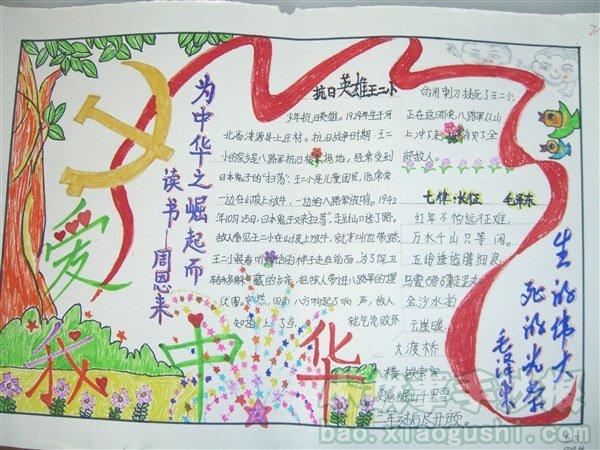 为中华之崛起而
读书——周恩来
爱
我中华
抗日英雄王二小
少年抗日英雄。1929年生于河
北省涞源县上庄村。抗日战争时期，王二
小的家乡是八路军抗日根据地，经常受到
日本鬼子的“扫荡”，王二小是儿童团员，他常常
一边在山坡上放牛，一边给八路军放哨。1942
年10月25日，日本鬼子又来扫荡，走到山口迷了路。
敌人看见王二小在山坡上放牛，就叫他带路
王二小装着听话的样子走在前面，为了保卫
的乡亲，把敌人带进八路军的埋
伏圈。突然，四面八方响起了枪声，敌人
知道上了当 就气急败坏
的用刺刀挑死了王二小
正在这时候，八路军从山
上冲下来 了全
部敌人。
七律·长征 毛泽东
红军不怕远征难，
万水千山只等闲。
五岭逶迤腾细浪，
乌蒙磅礴走泥丸
金沙水拍
云崖暖，
大渡桥
横铁索寒
更喜岷山千里雪
三军过后尽开颜。
生的伟大
死的光荣
毛泽东
bao.xiaogushi.com